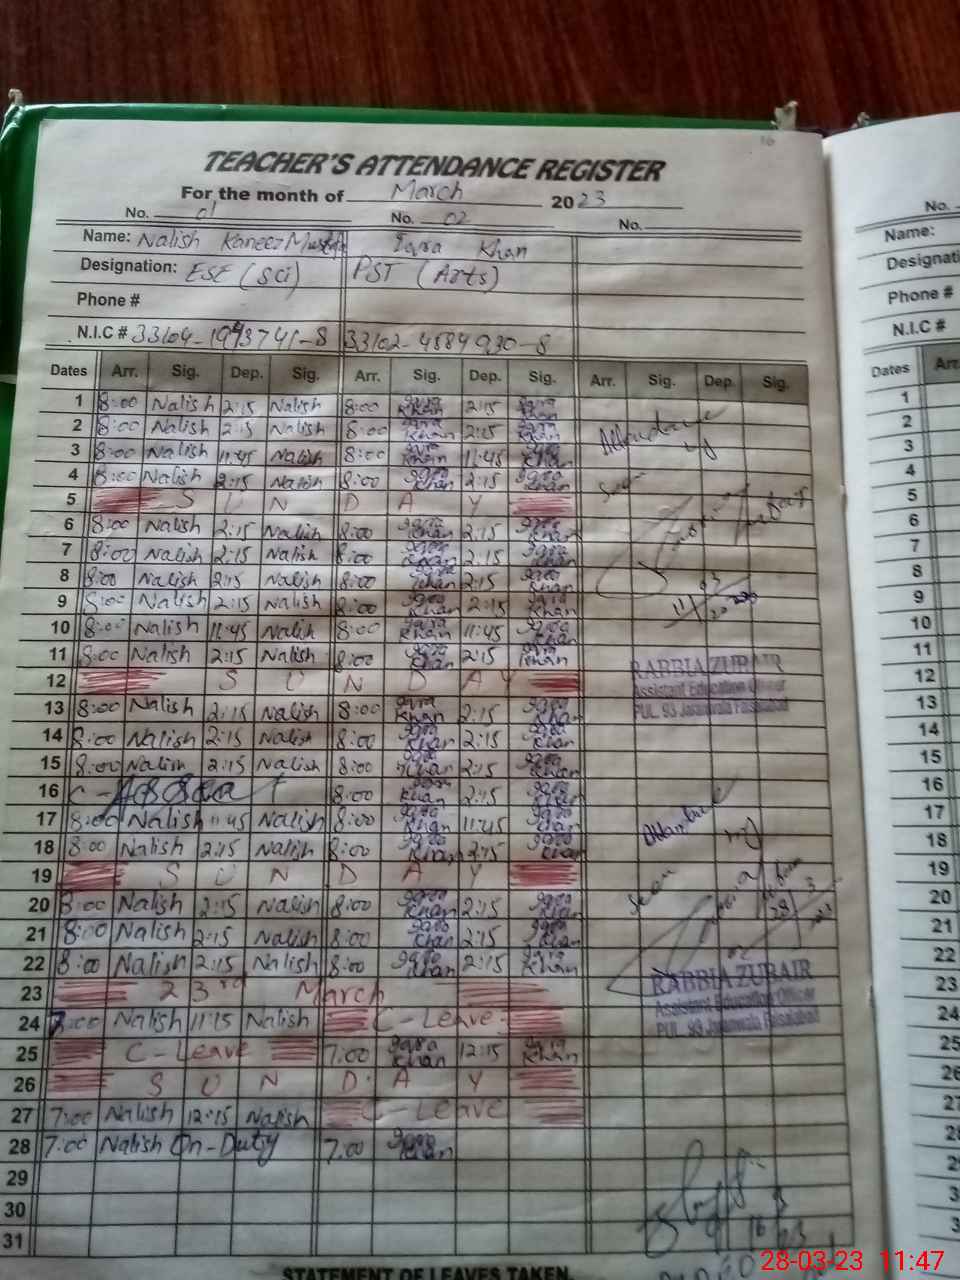 16
TEACHER'S ATTENDANCE REGISTER
For the month of March 2023
No. 01 No. 02 No.
Name: Nalish Kaneez Iqra Khan
Designation: ESE (Sci) PST (Arts)
Phone #
N.I.C # 33102-4884930-8
Dates Arr. Sig. Dep. Sig. Arr. Sig. Dep. Sig. Arr. Sig. Dep. Sig.
1 8:00 Nalish 2:15 Nalish 8:00 Iqra Khan 2:15 Iqra Khan
2 8:00 Nalish 2:15 Nalish 8:00 Iqra Khan 2:15 Iqra Khan
3 8:00 Nalish 11:45 Nalish 8:00 Iqra Khan 11:45 Iqra Khan
4 8:00 Nalish 2:15 Nalish 8:00 Iqra Khan 2:15 Iqra Khan
5 S U N D A Y
6 8:00 Nalish 2:15 Nalish 8:00 Iqra Khan 2:15 Iqra Khan
7 8:00 Nalish 2:15 Nalish 8:00 Iqra Khan 2:15 Iqra Khan
8 8:00 Nalish 2:15 Nalish 8:00 Iqra Khan 2:15 Iqra Khan
9 8:00 Nalish 2:15 Nalish 8:00 Iqra Khan 2:15 Iqra Khan
10 8:00 Nalish 11:45 Nalish 8:00 Iqra Khan 11:45 Iqra Khan
11 8:00 Nalish 2:15 Nalish 8:00 Iqra Khan 2:15 Iqra Khan
12 S U N D A Y
13 8:00 Nalish 2:15 Nalish 8:00 Iqra Khan 2:15 Iqra Khan
14 8:00 Nalish 2:15 Nalish 8:00 Iqra Khan 2:15 Iqra Khan
15 8:00 Nalish 2:15 Nalish 8:00 Iqra Khan 2:15 Iqra Khan
16 C- 8:00 Iqra Khan 2:15 Iqra Khan
17 8:00 Nalish 11:45 Nalish 8:00 Iqra Khan 11:45 Iqra Khan
18 8:00 Nalish 2:15 Nalish 8:00 Iqra Khan 2:15 Iqra Khan
19 S U N D A Y
20 8:00 Nalish 2:15 Nalish 8:00 Iqra Khan 2:15 Iqra Khan
21 8:00 Nalish 2:15 Nalish 8:00 Iqra Khan 2:15 Iqra Khan
22 8:00 Nalish 2:15 Nalish 8:00 Iqra Khan 2:15 Iqra Khan
23 23rd March
24 7:00 Nalish 11:15 Nalish C-Leave
25 C-Leave 7:00 Iqra Khan 12:15 Iqra Khan
26 S U N D A Y
27 7:00 Nalish 12:15 Nalish C-Leave
28 7:00 Nalish On-Duty 7:00 Iqra Khan
29
30
31
STATEMENT OF LEAVES TAKEN
Attendance
Seen
RABBIA ZUBAIR
Assistant Education Officer
PUL. 93 Jaranwala Faisalabad
Attendance
Seen
RABBIA ZUBAIR
Assistant Education Officer
PUL. 93 Jaranwala Faisalabad
No.
Name:
Designati
Phone #
N.I.C #
Dates Arr
1
2
3
4
5
6
7
8
9
10
11
12
13
14
15
16
17
18
19
20
21
22
23
24
25
26
27
28
29
28-03-23 11:47